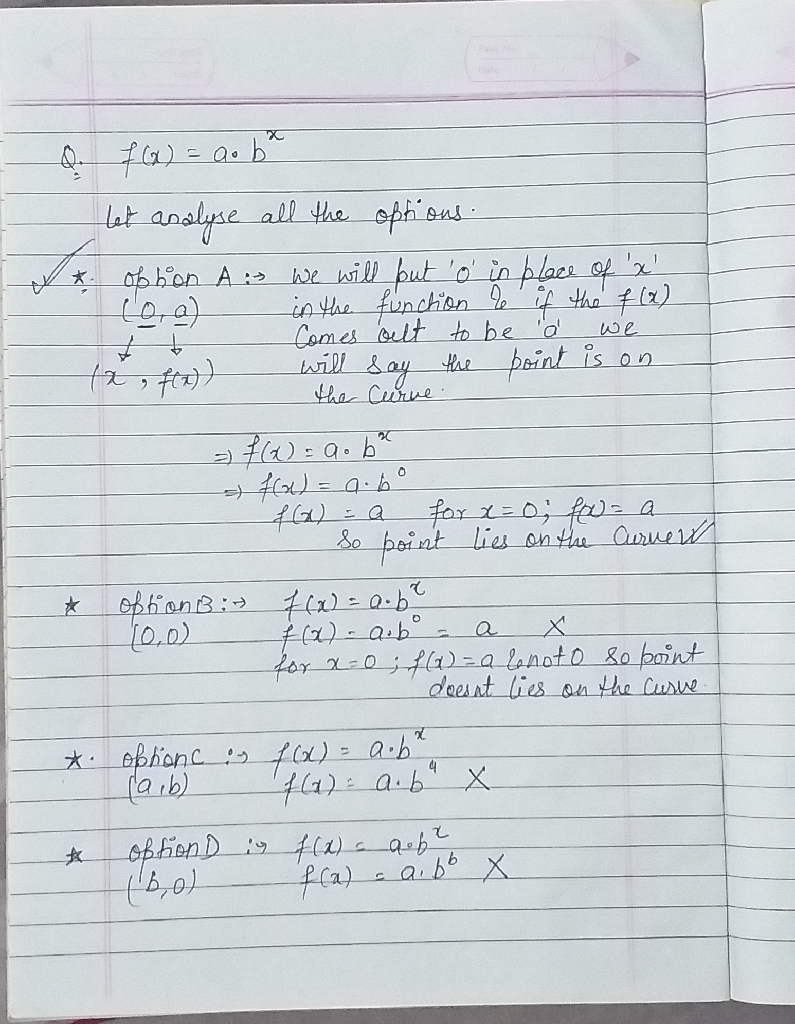 Q. f(x) = a. b^x
let analyse all the options.
* option A :→ We will put 'o' in place of 'x'
(0, a) in the function & if the f(x)
↓ ↓ Comes out to be 'a' we
(x, f(x)) will say the point is on
the Curve.
⇒ f(x) = a. b^x
⇒ f(x) = a. b^0
f(x) = a for x = 0; f(x) = a
So point lies on the Curve ✓
* option B :→ f(x) = a.b^x
(0,0) f(x) = a.b^0 = a X
for x=0 ; f(x) = a & not 0 so point
doesnt lies on the curve.
*. option C :→ f(x) = a.b^x
(a,b) f(x) = a.b^a X
* option D :→ f(x) = a.b^x
(b,0) f(x) = a.b^b X